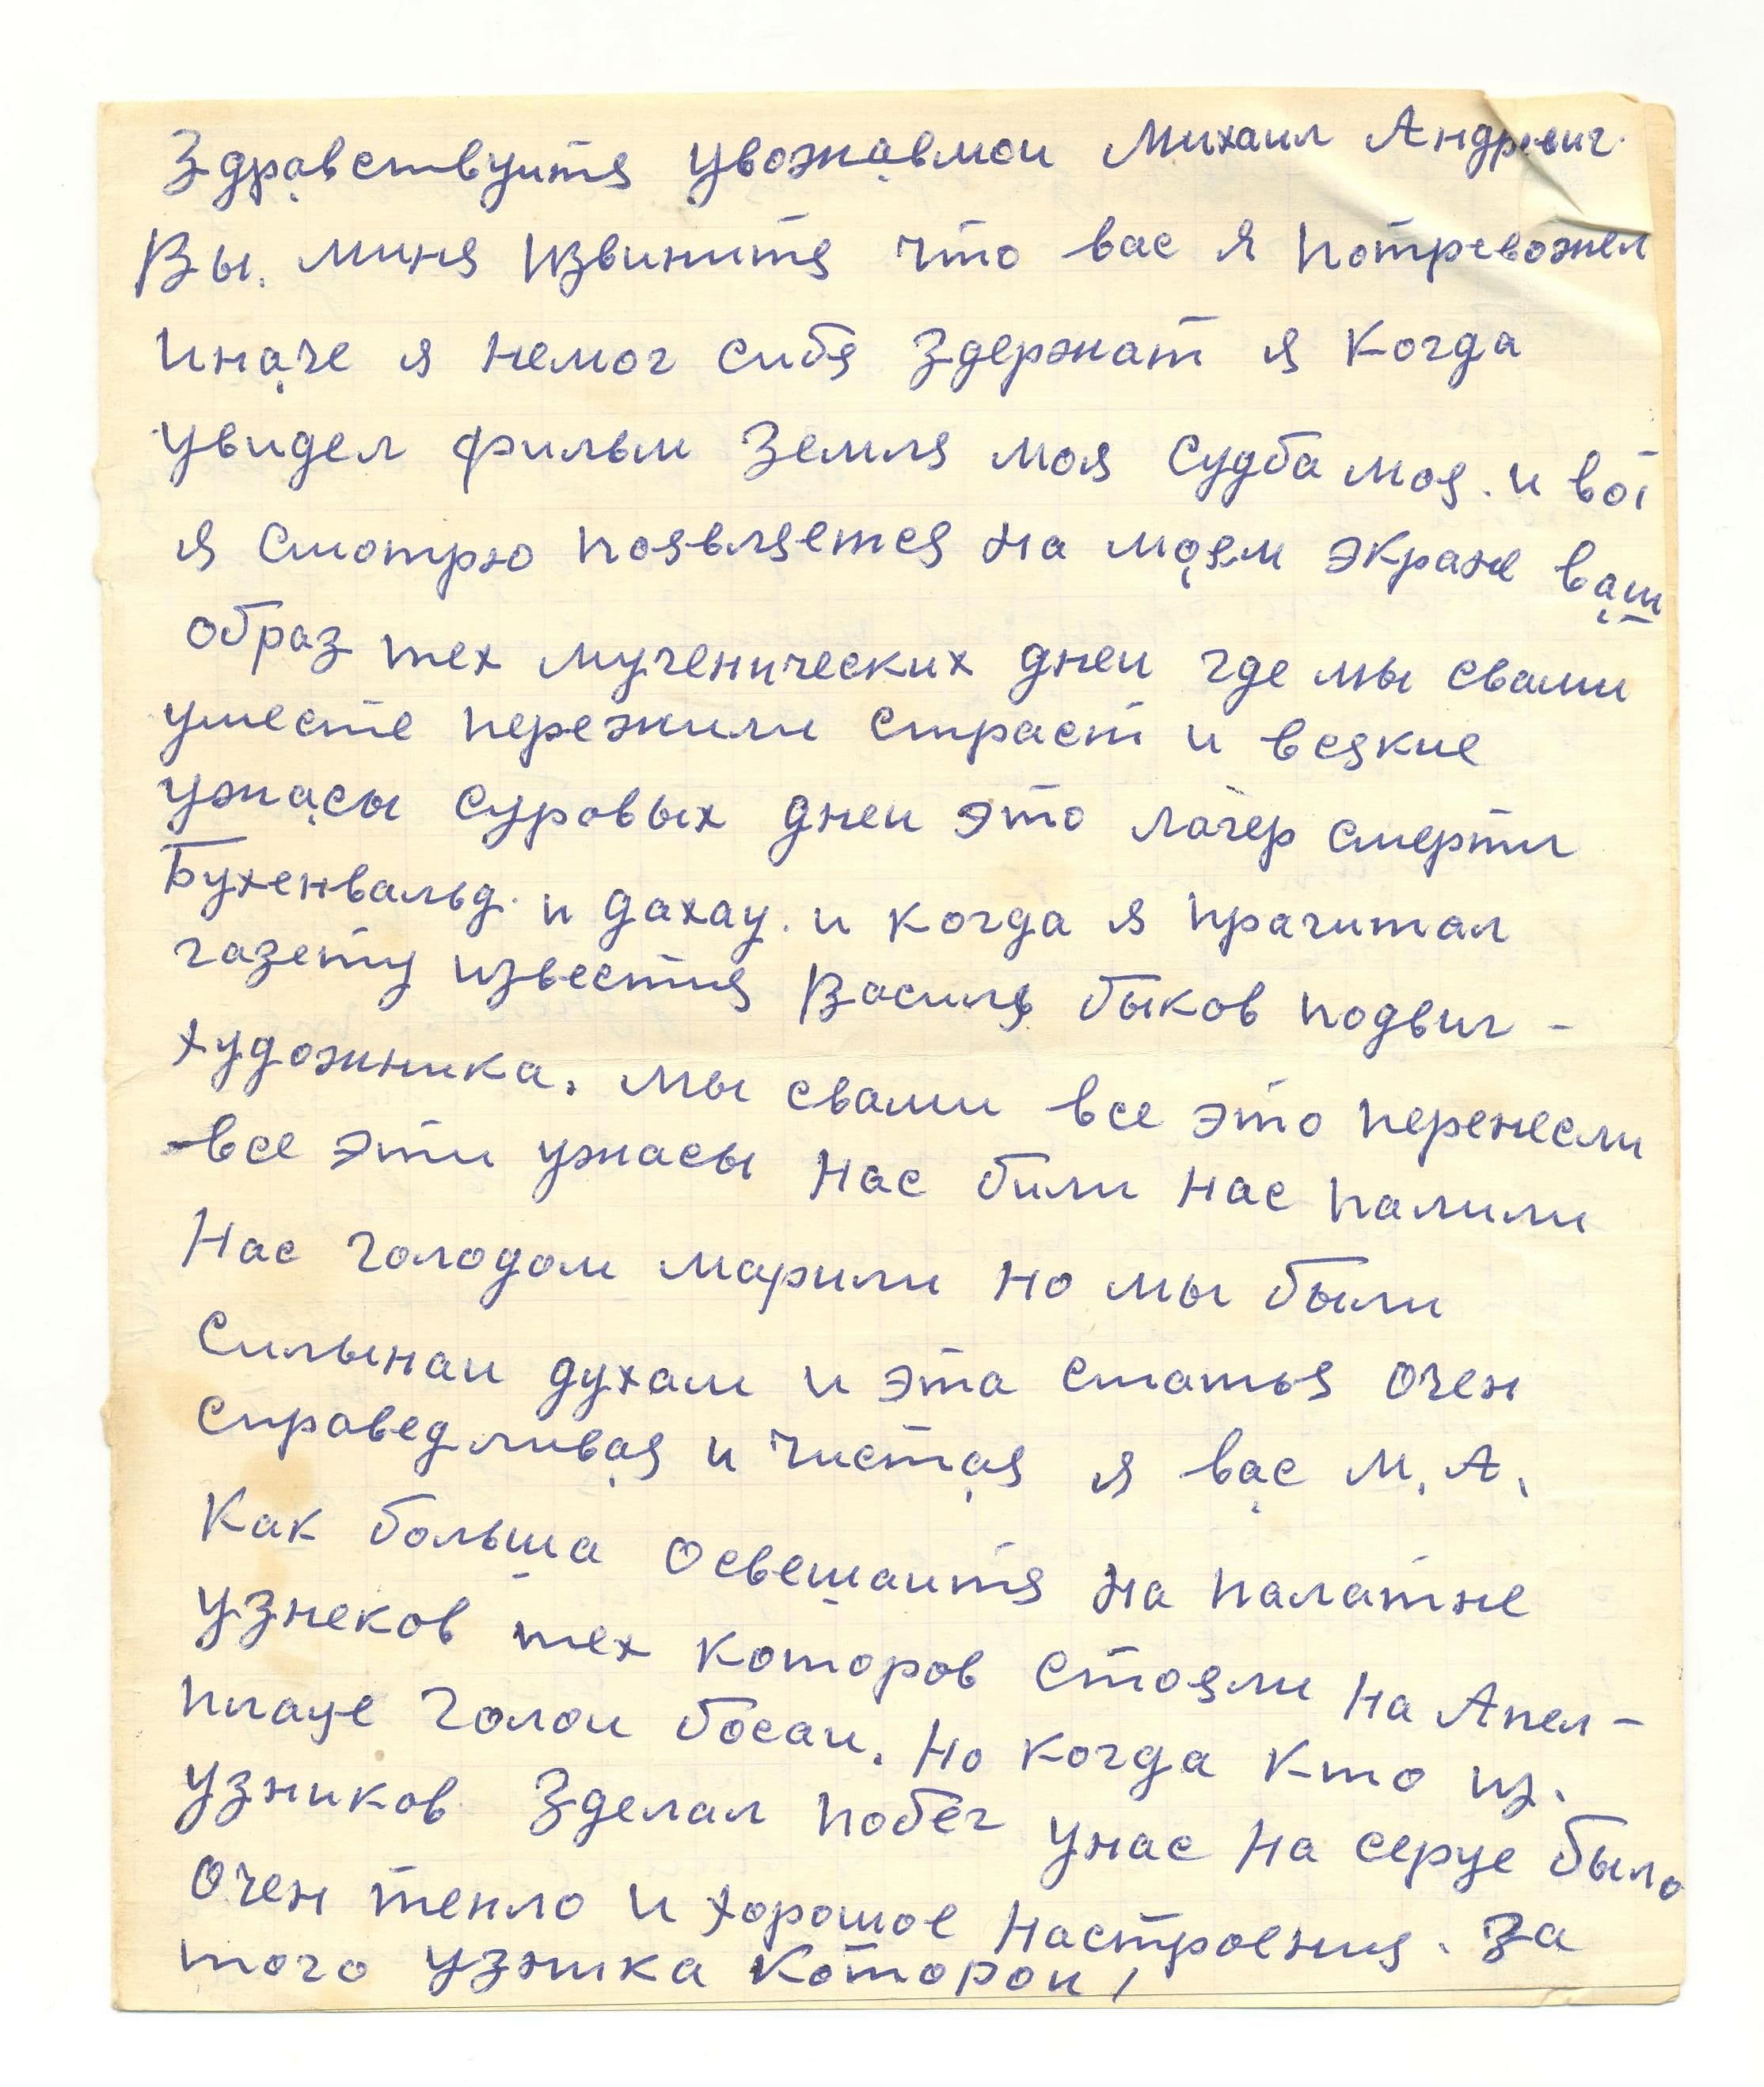 Здравствуитя увожаемои Михаил Андревич.
Вы. миня извинитя что вас я потревожел
иначе я немог сибя здержат я когда
увидел фильм Земля моя судба моя. и вот
я смотрю появляется на моям экране ваш
образ тех мученических днеи где мы свами
уместе пережили страст и всякие
ужасы суровых днеи это лагер смерти
Бухенвальд. и дахау. и когда я прачитал
газету известия Василь быков подвиг -
художника. мы свами все это перенесли
все эти ужасы нас били нас палили
Нас голодом марили но мы были
Сильнаи духам и эта статья очен
справедливая и чистая я вас М. А.
Как больша освешаитя на палатне
узнеков тех которов стояли на Апел-
плаце голои босаи. Но когда кто из.
узников зделал побег унас на серце было
очен тепло и хорошое настроения. За
того узника которои,